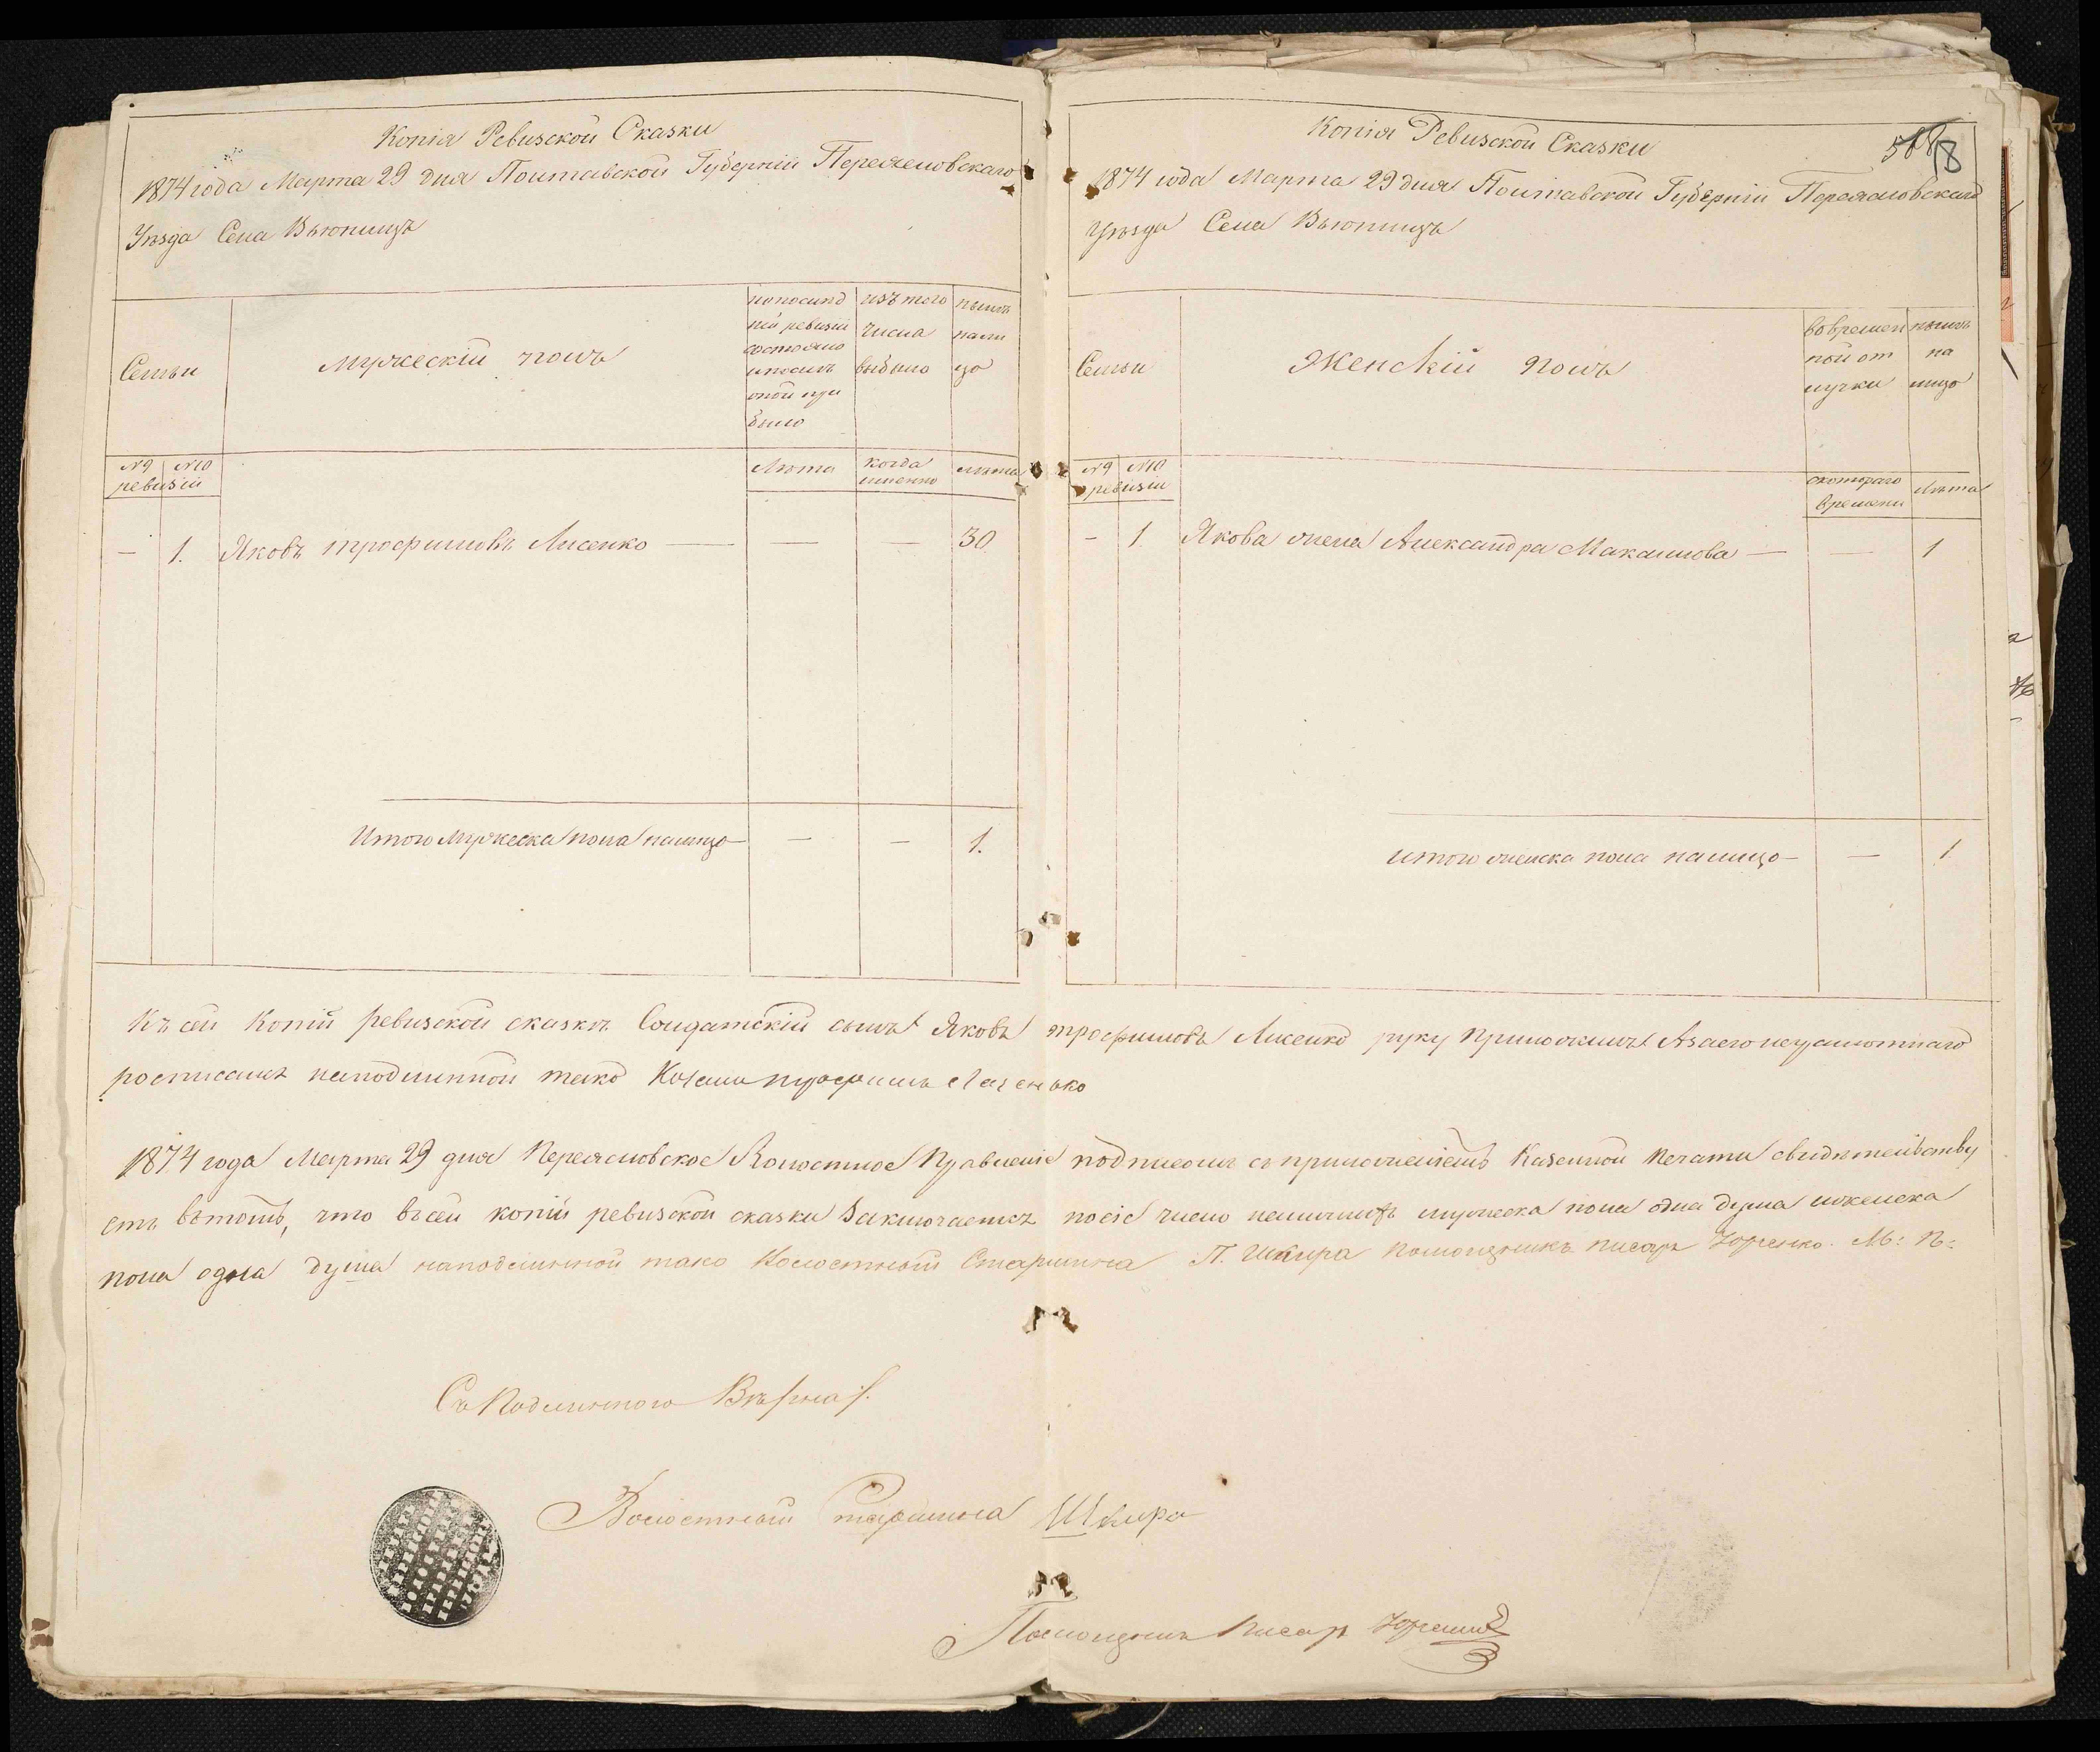 Копія Ревизской Сказки
1874 года Марта 29 дня Полтавской Губерніи Переяславскаго
Уѣзда Села Вьюнищъ
Семьи
Мужескій полъ
по послѣд
ней ревизіи
состояло
и послѣ
оной при
было
изъ того
числа
выбыло
нынѣ
нали
цо
№9 №10
ревизіи
Лѣта
когда
именно
Лѣта
— 1. Яковъ трофимовъ Лисенко — — — 30
Итого Мужеска пола налицо — — 1.
Копія Ревизской Сказки
1874 года Марта 29 дня Полтавской Губерніи Переяславскаго
Уѣзда Села Вьюнищъ
Семьи
Женскій полъ
во времен
ной от
лучки
нынѣ
на
лицо
№9 №10
ревизіи
скотораго
времени
Лѣта
— 1 Якова жена Александра Макаимова — — 1
итого женска пола налицо — — 1
Къ сей Копіи ревизской сказкѣ Солдатскій сынъ Яковъ трофимовъ Лисенко руку приложилъ Азаего неграмотнаго
росписался наподлинной тако
1874 года Марта 29 дня Переясловское Волостное Правленіе подписомъ съ приложеніемъ Казенной печати свидѣтельству
етъ вътомъ, что въсей копіи ревизской сказки Заключается посіе число наличныхъ мужеска пола одна душа иженска
пола одна душа наподлинной тако Волостный Старшина П. Шкира помощникъ писаря М: П:
Съ Подлинного Вѣрна/.
Волостный Старшина Шкира
Помощникъ Писаря